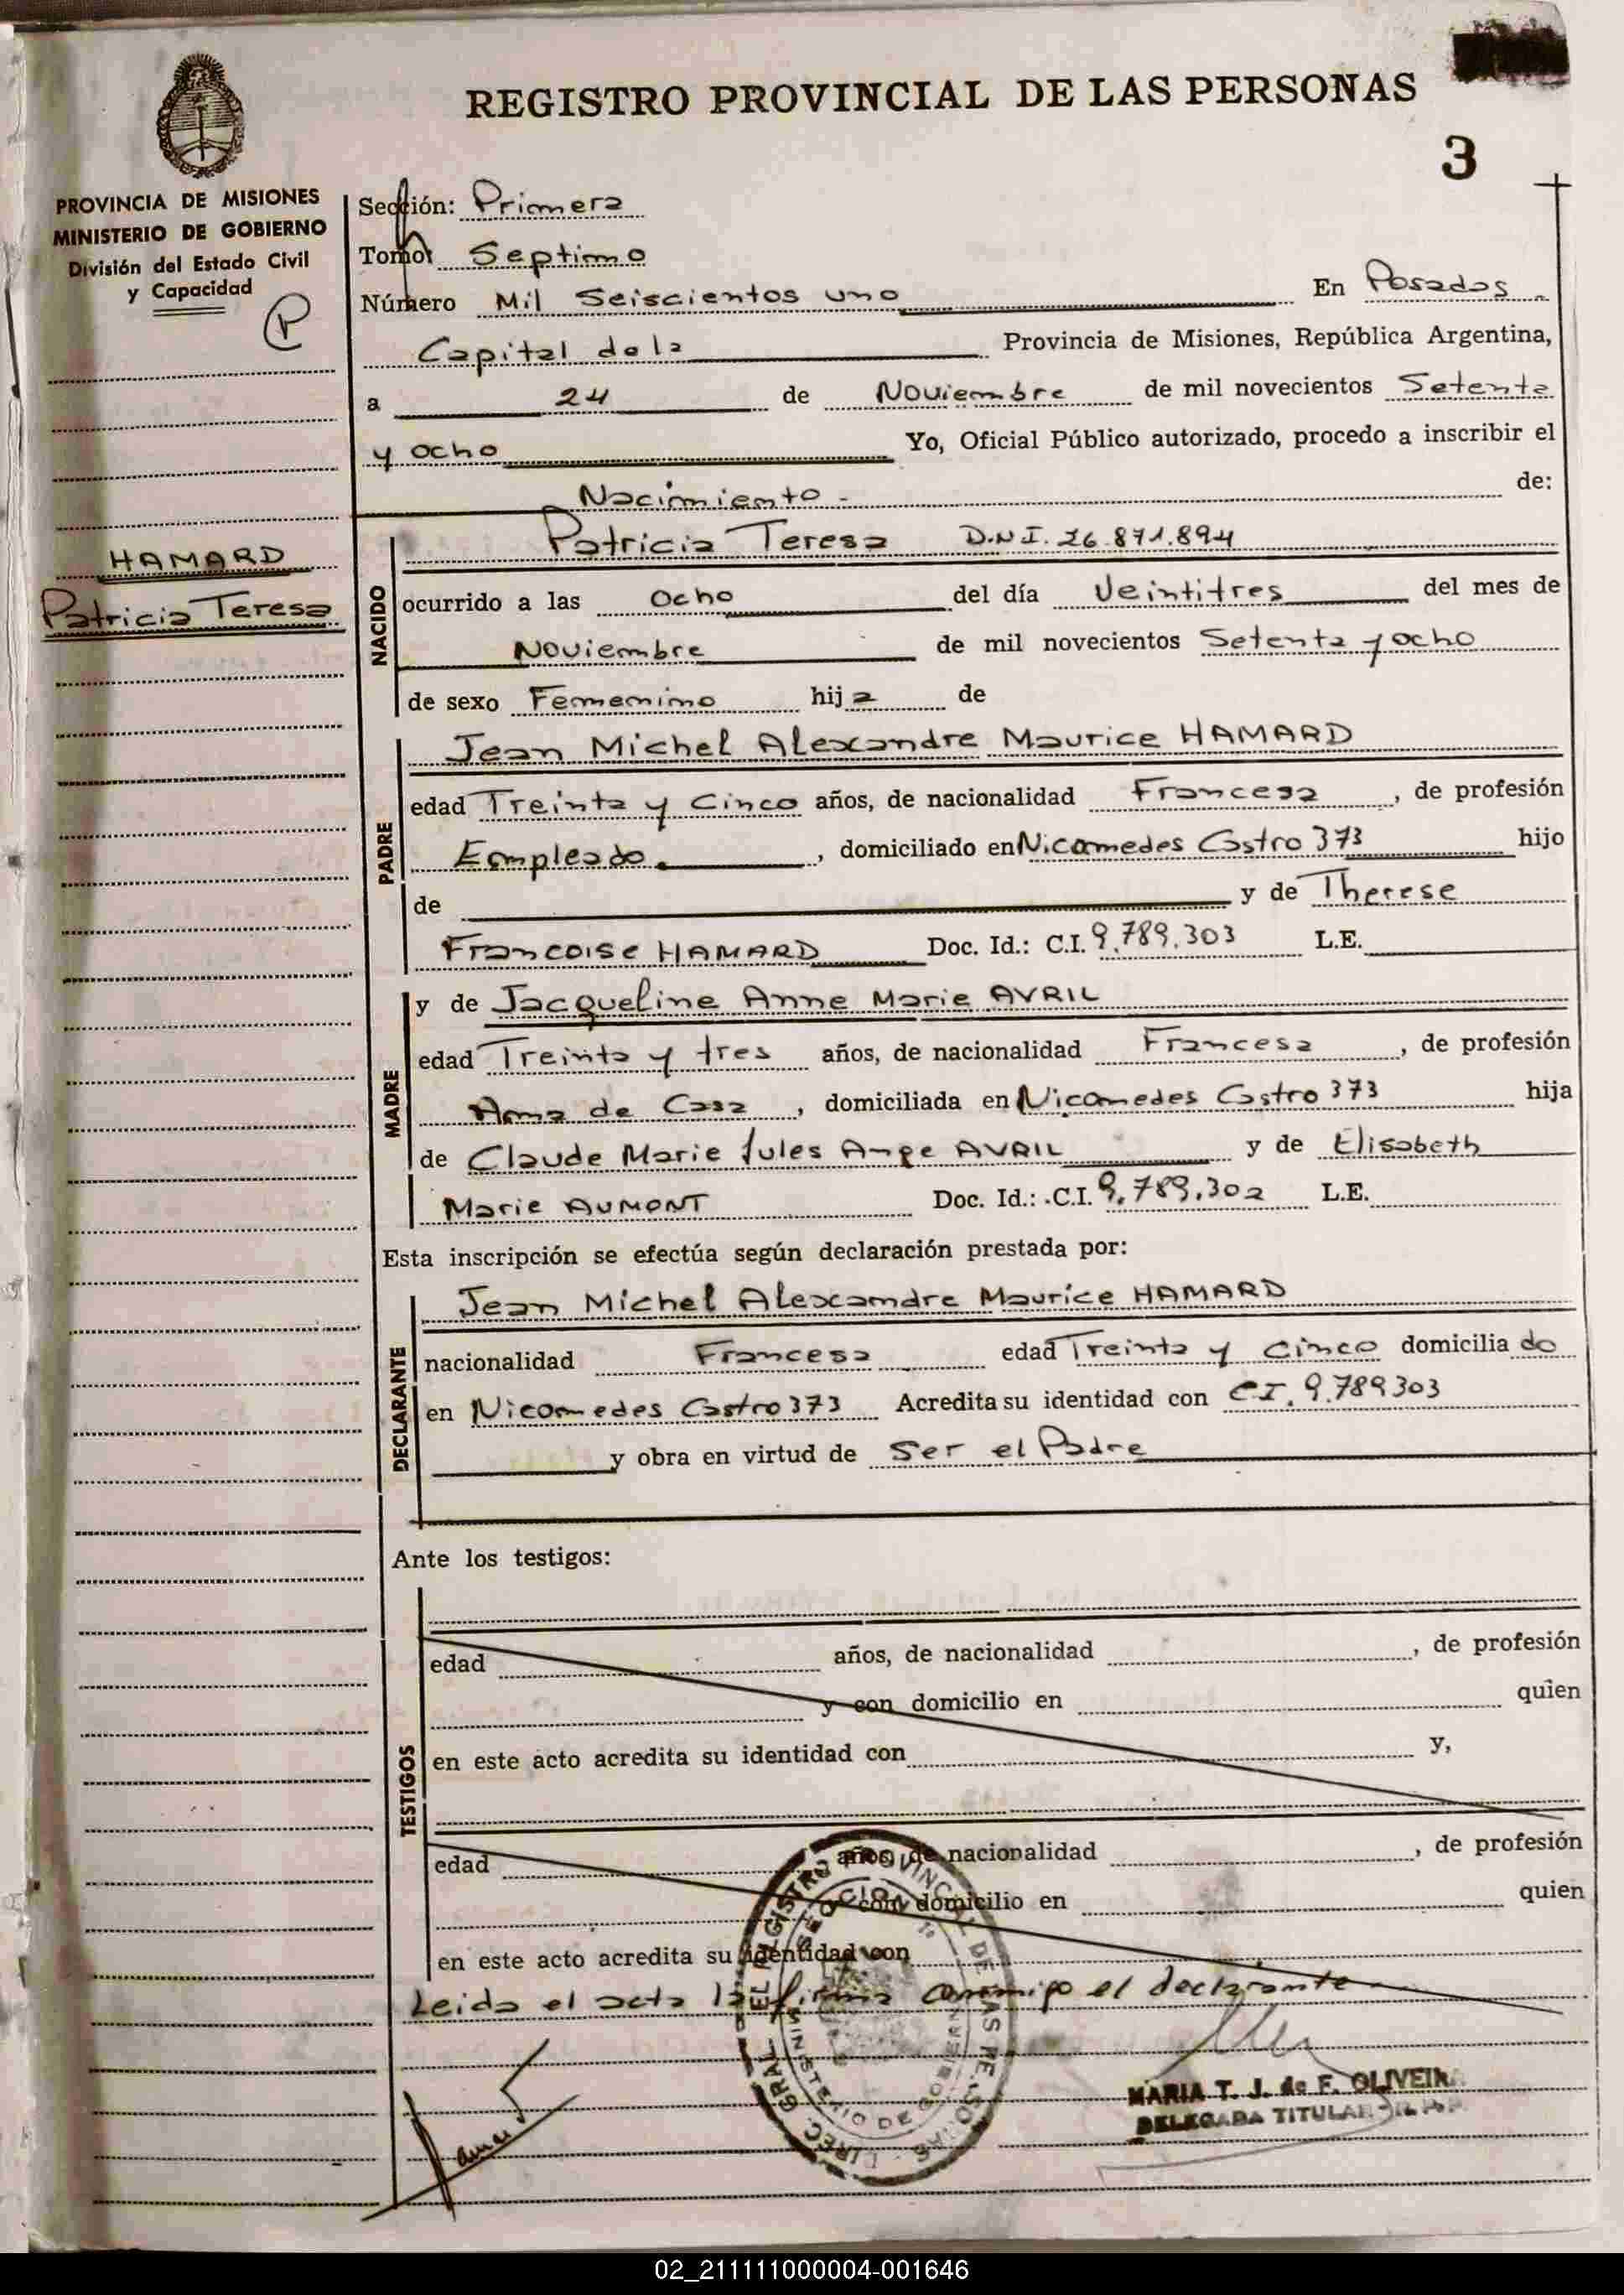 REGISTRO PROVINCIAL DE LAS PERSONAS
3
PROVINCIA DE MISIONES
MINISTERIO DE GOBIERNO
División del Estado Civil
y Capacidad
P
HAMARD
Patricia Teresa
Sección: Primera
Tomo: Septimo
Número Mil Seiscientos uno En Posadas
Capital de la Provincia de Misiones, República Argentina,
a 24 de Noviembre de mil novecientos Setenta
y ocho Yo, Oficial Público autorizado, procedo a inscribir el
Nacimiento - de:
NACIDO
Patricia Teresa D.N.I. 26.871.894
ocurrido a las Ocho del día Veintitres del mes de
Noviembre de mil novecientos Setenta y ocho
de sexo Femenino hija de
PADRE
Jean Michel Alexandre Maurice HAMARD
edad Treinta y Cinco años, de nacionalidad Francesa, de profesión
Empleado, domiciliado en Nicomedes Castro 373 hijo
de y de Therese
Francoise HAMARD Doc. Id.: C.I. 9.789.303 L.E.
MADRE
y de Jacqueline Anne Marie AVRIL
edad Treinta y tres años, de nacionalidad Francesa, de profesión
Ama de Casa, domiciliada en Nicomedes Castro 373 hija
de Claude Marie Jules Ange AVRIL y de Elisabeth
Marie AUMONT Doc. Id.: C.I. 9.789.302 L.E.
Esta inscripción se efectúa según declaración prestada por:
DECLARANTE
Jean Michel Alexandre Maurice HAMARD
nacionalidad Francesa edad Treinta y Cinco domiciliado
en Nicomedes Castro 373 Acredita su identidad con C.I. 9.789303
y obra en virtud de Ser el Padre
Ante los testigos:
TESTIGOS
edad años, de nacionalidad , de profesión
y con domicilio en quien
en este acto acredita su identidad con y,
edad años, de nacionalidad , de profesión
y con domicilio en quien
en este acto acredita su identidad con
Leida el acta la firma conmigo el declarante
DIREC. GRAL. DEL REGISTRO PROVINCIAL DE LAS PERSONAS
SECCION 1ª
MINISTERIO DE GOBIERNO
MARIA T. J. de F. OLIVEIRA
DELEGADA TITULAR R.P.P.
02_211111000004-001646